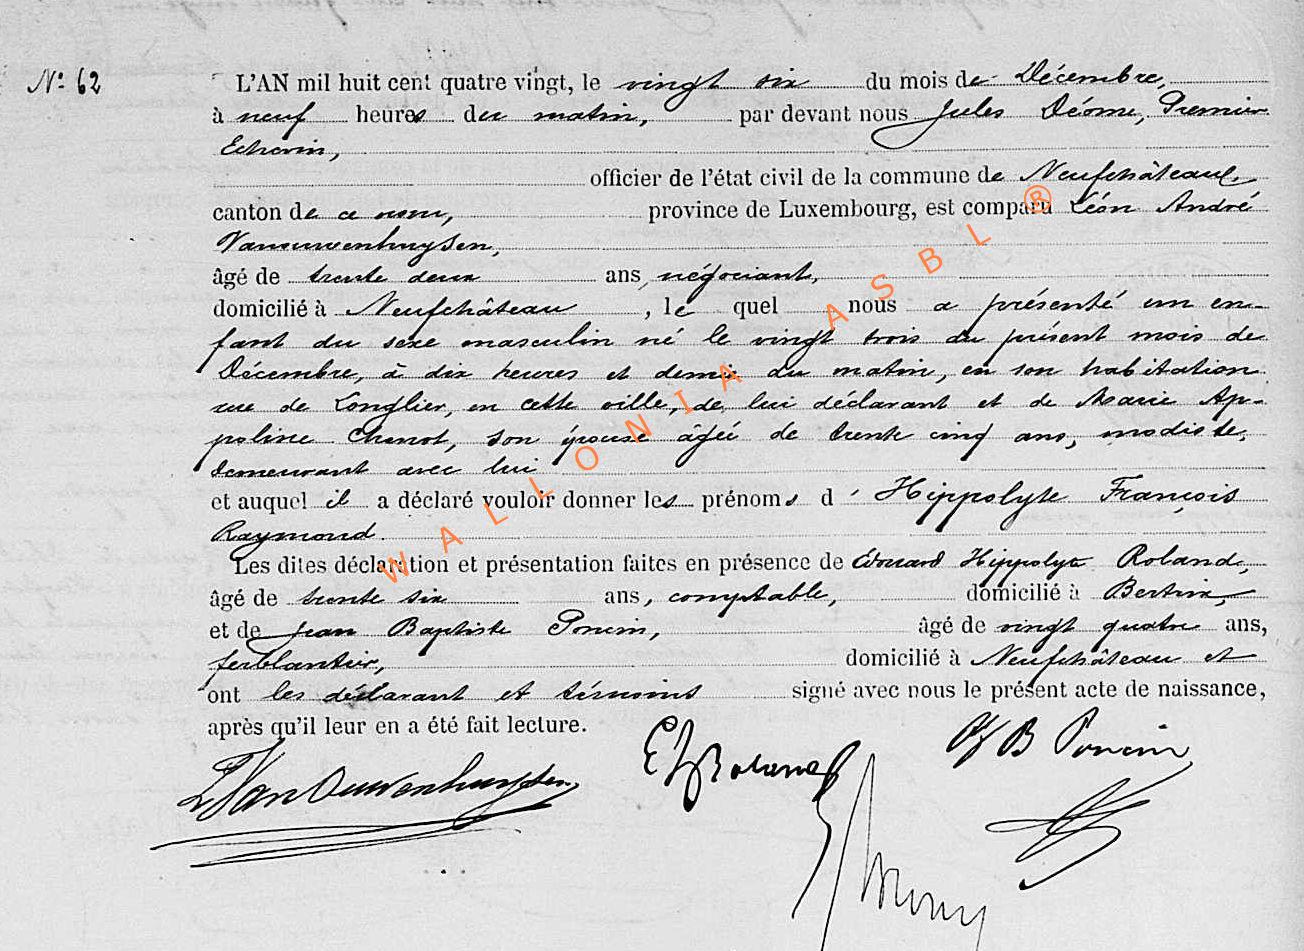 N° 62
L'AN mil huit cent quatre vingt, le vingt six du mois de Décembre,
à neuf heures du matin, par devant nous Jules Déome, Premier
Echevin,
officier de l'état civil de la commune de Neufchâteau,
canton de ce nom, province de Luxembourg, est comparu Léon André
Vanouwenhuysen,
âgé de trente deux ans, négociant,
domicilié à Neufchâteau, le quel nous a présenté un en-
fant du sexe masculin né le vingt trois du présent mois de
Décembre, à dix heures et demie du matin, en son habitation
rue de Longlier, en cette ville, de lui déclarant et de Marie Ap-
poline Chenot, son épouse âgée de trente cinq ans, modiste,
demeurant avec lui
et auquel il a déclaré vouloir donner les prénoms d'Hippolyte François
Raymond.
Les dites déclaration et présentation faites en présence de Edouard Hippolyte Roland,
âgé de trente six ans, comptable, domicilié à Bertrix,
et de Jean Baptiste Poncin, âgé de vingt quatre ans,
ferblantier, domicilié à Neufchâteau et
ont les déclarant et témoins signé avec nous le présent acte de naissance,
après qu'il leur en a été fait lecture.
L Vanouwenhuysen
E H Roland
J B Poncin
WALLONIA ASBL ®